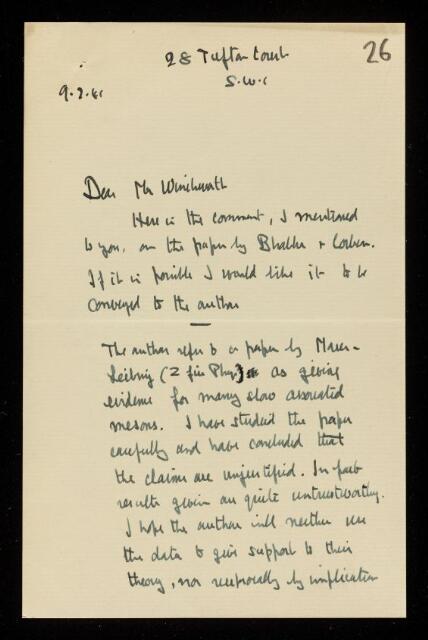 26
28 Tufton Court
S.W.1
9.2.41
Dear Mr Winckworth
Here is the comment, I mentioned
to you, on the paper by Bhabha & Corben.
If it is possible I would like it to be
conveyed to the author
The author refers to a paper by Maier-
Leibnitz (Z für Phys.) as giving
evidence for many slow associated
mesons. I have studied the paper
carefully and have concluded that
the claims are unjustified. In fact
results given are quite untrustworthy.
I hope the author will neither use
the data to give support to their
theory, nor reciprocally by implication